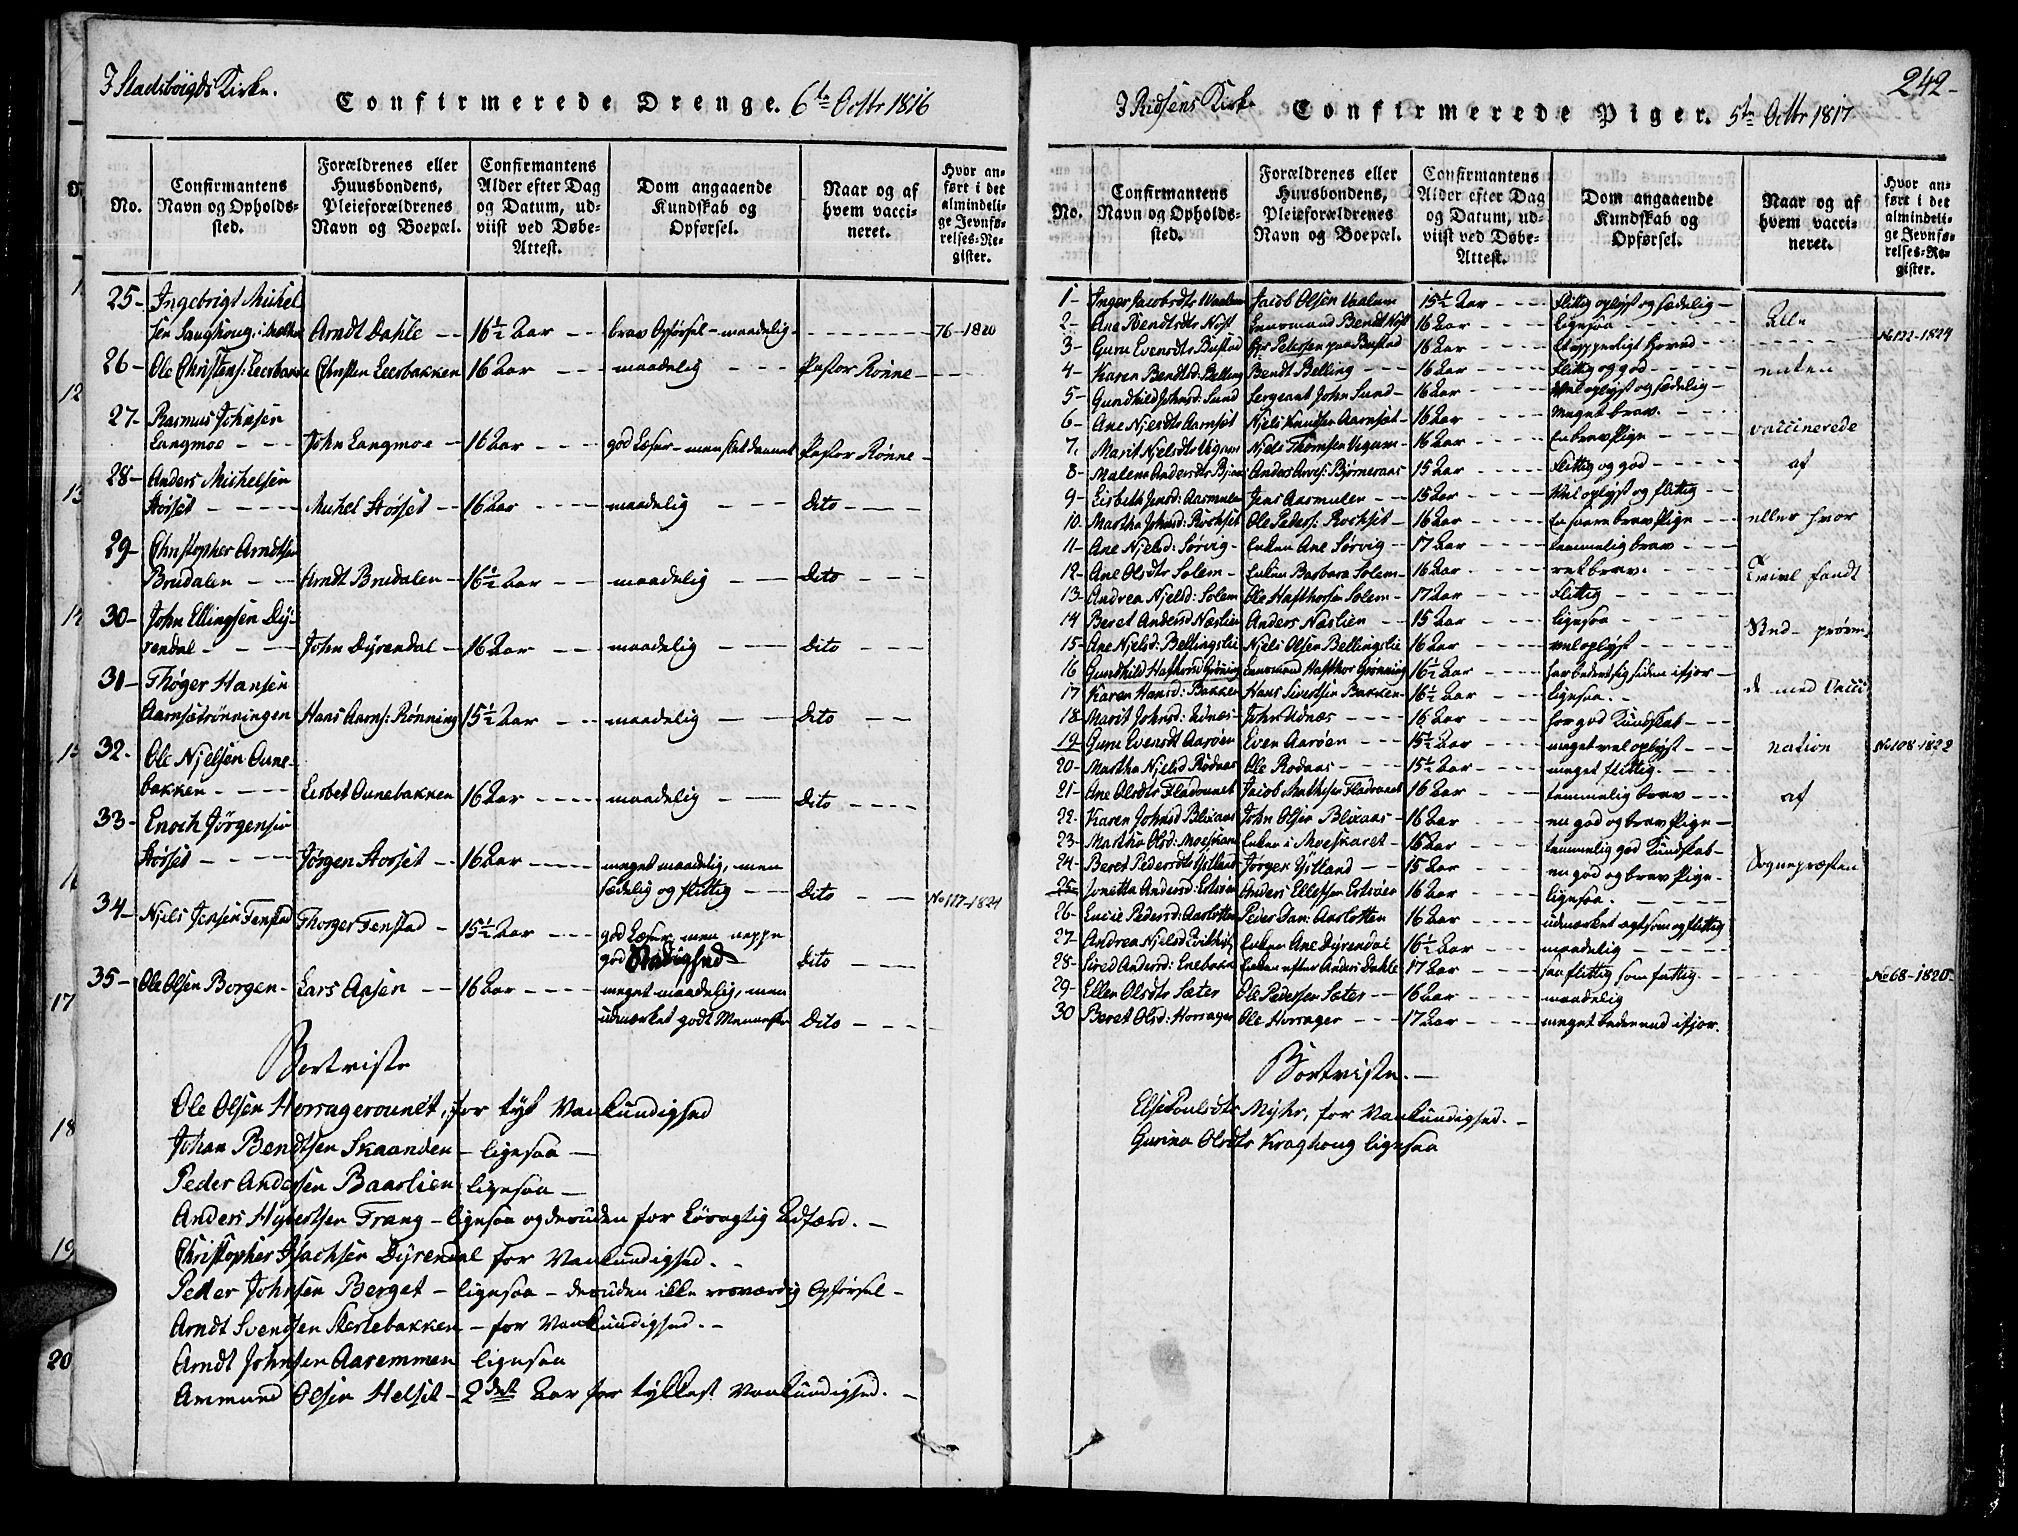 I Stadsbøigds Kirke.
Confirmerede Drenge. 6te Octbr 1816
No.
Confirmantens Navn og Opholds-sted.
Forældrenes eller Huusbondens, Pleieforældrenes Navn og Boepæl.
Confirmantens Alder efter Dag og Datum, ud-viist ved Døbe-Attest.
Dom angaaende Kundskab og Opførsel.
Naar og af hvem vacci-neret.
Hvor an-ført i det almindeli-ge Jevnfø-relses-Re-gister.
25- Ingebrigt Michel
sen Arndt Dahle - 16½ Aar - brav Opførsel - maadelig - 76-1820
26- Ole Christens: Leerbakke Christen Leerbakken 16 Aar - maadelig - Pastor Rønne -
27- Rasmus Johnsen
Langmoe - John Langmoe - 16 Aar - god Læser - men slet dannet Pastor Rønne -
28- Anders Michelsen
Storset - Michel Storset - 16 Aar - maadelig - Dito -
29- Christopher Arndtsen
Brudalen - Arndt Brudalen - 16½ Aar - maadelig - Dito -
30- John Ellingsen Dy-
rendal - John Dyrendal - 16 Aar - maadelig - Dito -
31- Thøger Hansen
Aarnsetrønningen Hans Aarns: Rønning 15½ Aar - maadelig - Dito -
32- Ole Njelsen Oune-
bakken - Lisbet Ounebakken 16 Aar - maadelig - Dito -
33- Enoch Jørgensen
Storset - Jørgen Storset - 16 Aar - meget maadelig, men
sædelig og flittig - Dito - No 117-1824
34- Njels Jensen Fenstad Thorger Fenstad - 15½ Aar - god Læser, men neppe
god Stadighed - Dito -
35- Ole Olsen Borgen - Lars Aasen - 16 Aar - meget maadelig, men
udmærket godt Menneske Dito -
Bortviste
Ole Olsen Horragerounet, for tyk Vankundighed
Johan Bendtsen Skaanden - ligesaa -
Peder Andersen Baarlien ligesaa -
Anders Hybertsen Trang - ligesaa og desuden for Løsagtig Adfærd. -
Christopher Isachsen Dyrendal for Vankundighed. -
Peder Johnsen Berget - ligesaa - desuden ikke roesværdig Opførsel -
Arndt Svendsen Sterlebakken - for Vankundighed. -
Arndt Johnsen Aaremmen ligesaa
Ammund Olsen Helset - 2det Aar for tykkest Vankundighed. -
242-
I Ridsens Kirke
Confirmerede Piger. 5te Octbr 1817
No.
Confirmantens Navn og Opholds-sted.
Forældrenes eller Huusbondens, Pleieforældrenes Navn og Boepæl.
Confirmantens Alder efter Dag og Datum, ud-viist ved Døbe-Attest.
Dom angaaende Kundskab og Opførsel.
Naar og af hvem vacci-neret.
Hvor an-ført i det almindeli-ge Jevnfø-relses-Re-gister.
1- Inger Jacobsdtr Vaalum Jacob Olsen Vaalum 15½ Aar - flittig oplyst og sædelig -
2- Ane Bendtsdtr Nøst Lensmand Bendt Nøst 16 Aar - ligesaa - Alle
3- Guru Evensdtr Bustad Hr Petersen paa Bustad 16 Aar - Et ypperligt Hoved - No 122-1824
4- Karen Bendtsd: Belling Bendt Belling - 16 Aar - flittig og god - enten
5- Gundhild Johnsd: Sund Sergeant John Sund - 16 Aar - Vel oplyst og sædelig -
6- Ane Njelsdtr Aarnset Njels Knudsen Aarnset - 16 Aar - Meget brav. -
7. Marit Njelsdtr Vigum Njels Thomsen Vigum - 16 Aar - En brav Pige - vaccinerede
8- Malena Andersdtr Bjørn Anders Arves: Bjørneraas 15 Aar - flittig og god - af
9- Lisbeth Jensd: Aasmulen Jens Aasmulen - 15 Aar - Vel oplyst og flittig -
10. Martha Johnsd: Rochset Ole Peders: Rochset - 16 Aar - En særr brav Pige - eller hvor
11- Ane Njelsd: Sørvig - Enken Ane Sørvig - 17 Aar - temmelig brav -
12- Ane Olsdtr Solem - Enken Barbara Solem - 16 Aar - ret brav. - Tvivl fandt
13- Andrea Njelsd: Solem Ole Hafthorsen Solem - 17 Aar - flittig -
14 Beret Andersd Næslien Anders Næslien - 15 Aar - ligesaa -
15- Ane Njelsd: Bellingslie Njels Olsen Bellingslie 16 Aar - vel oplyst - Sted - prøve-
16 Gundhild Hafthorsd Grønning Lensmand Hafthor Grønning 16½ Aar - har bedret sig siden ifjor -
17 Karen Hansd: Bakken Hans Sivertsen Bakken - 16½ Aar - ligesaa. - de med Vacci-
18- Marit Johnsd: Udnæs - John Udnæs - 16 Aar - har god Kundskab -
19- Guru Evensdt Aarøen Even Aarøen - 15½ Aar - meget vel oplyst - nation No 108-1822
20- Martha Njelsd Rødaas Ole Rødaas - 15½ Aar - meget flittig. -
21- Ane Olsdtr Fladvounet Jacob Fladvounet 16 Aar - temmelig brav - af
22- Karen Johnsd Blixaas John Olsen Blixaas - 16 Aar - en god og brav Pige -
23- Martha Olsd: Moeskaar Enken i Moeskaret - 16 Aar - temmelig god Kundskab -
24- Beret Pedersdtr Ystland Jørgen Ystland - 15 Aar - en god og brav Pige - Sognepræsten
25- Jonetta Andersd: Anders 16 Aar - ligesaa. -
26- Lucie Pedersd: Aarlotten Peder Dan: Aarlotten 16 Aar - udmærket agtsom og flittig
27- Andrea Njelsd Enken Ane Dyrendal 16½ Aar - maadelig -
28- Sired Andersd: Enebakk Enken efter Anders Dahle 17 Aar - saa flittig som fattig. - No 68-1820
29- Ellen Olsdtr Sæter Ole Pedersen Sæter - 16 Aar - maadelig
30 Beret Olsd: Horrager Ole Horrager - 17 Aar - meget bedre end ifjor.
Bortviste. -
Else Poulsdtr Myhr, for Vankundighed. -
Gurina Olsdtr Kraghoug ligesaa
0
1
12
13
14
15
16
17
18
19
20